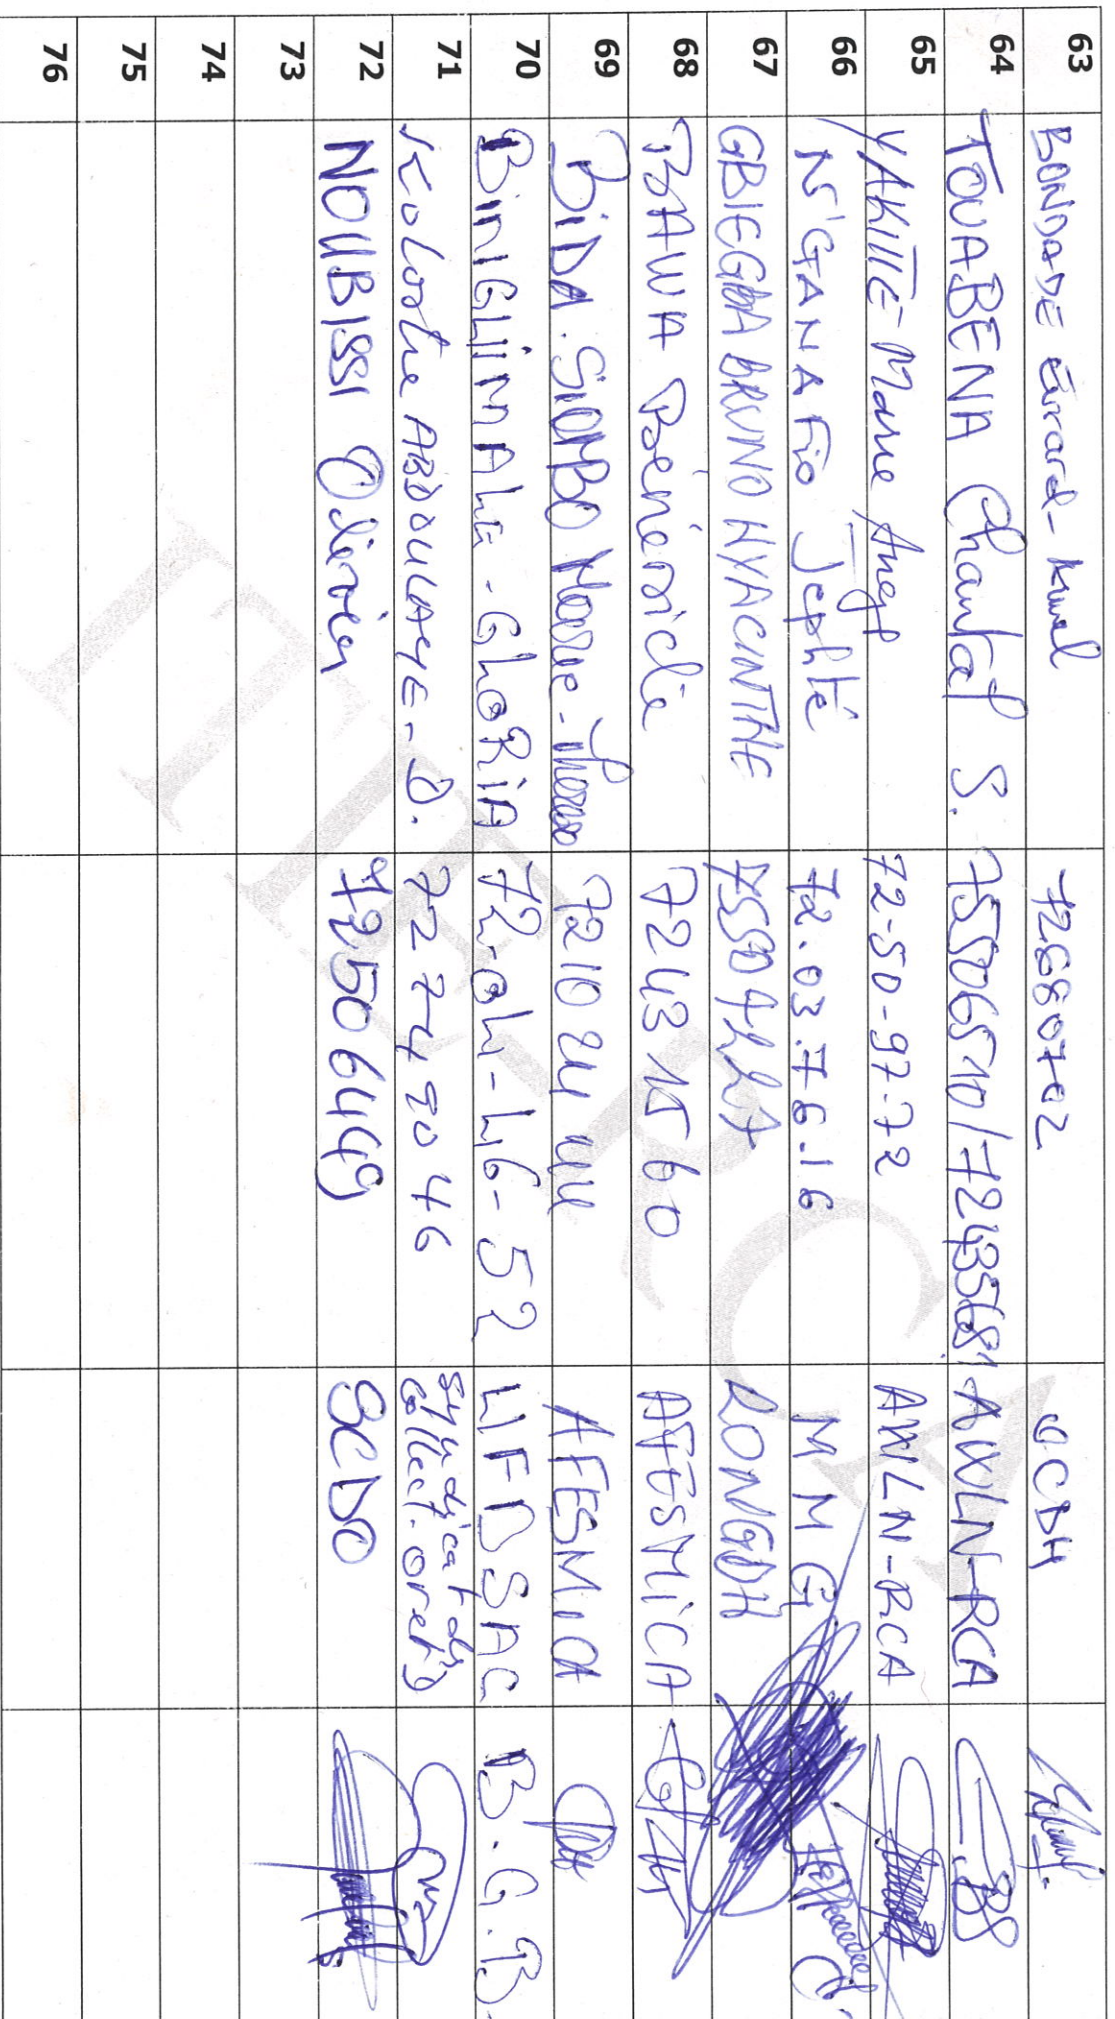 63 BONDADE Evrard- 72680702 OCDH
64 TOUABENA Chantal S. 75506510/72435681 AWLN-RCA
65 YAKITE-Marie Ange 72-50-97-72 AWLN-RCA
66 N'GANAFIO Jephté 72.03.76.16 M M G
67 GBIEGBA BRUNO HYACINTHE RONGDH
68 BAWA Bénédicte 72431560 AFESMICA
69 BiDA.SIOMBO Marie-Therese AFESMICA
70 BiniGLiMALE-GLORiA 72-04-46-52 LIFDSAC B.G.B
71 Kolostre ABDOULAYE-D. 72749046 Syndicat des collect.
72 NOUBISSI Olivier 72506449 SCDO
73
74
75
76
IIEPCA